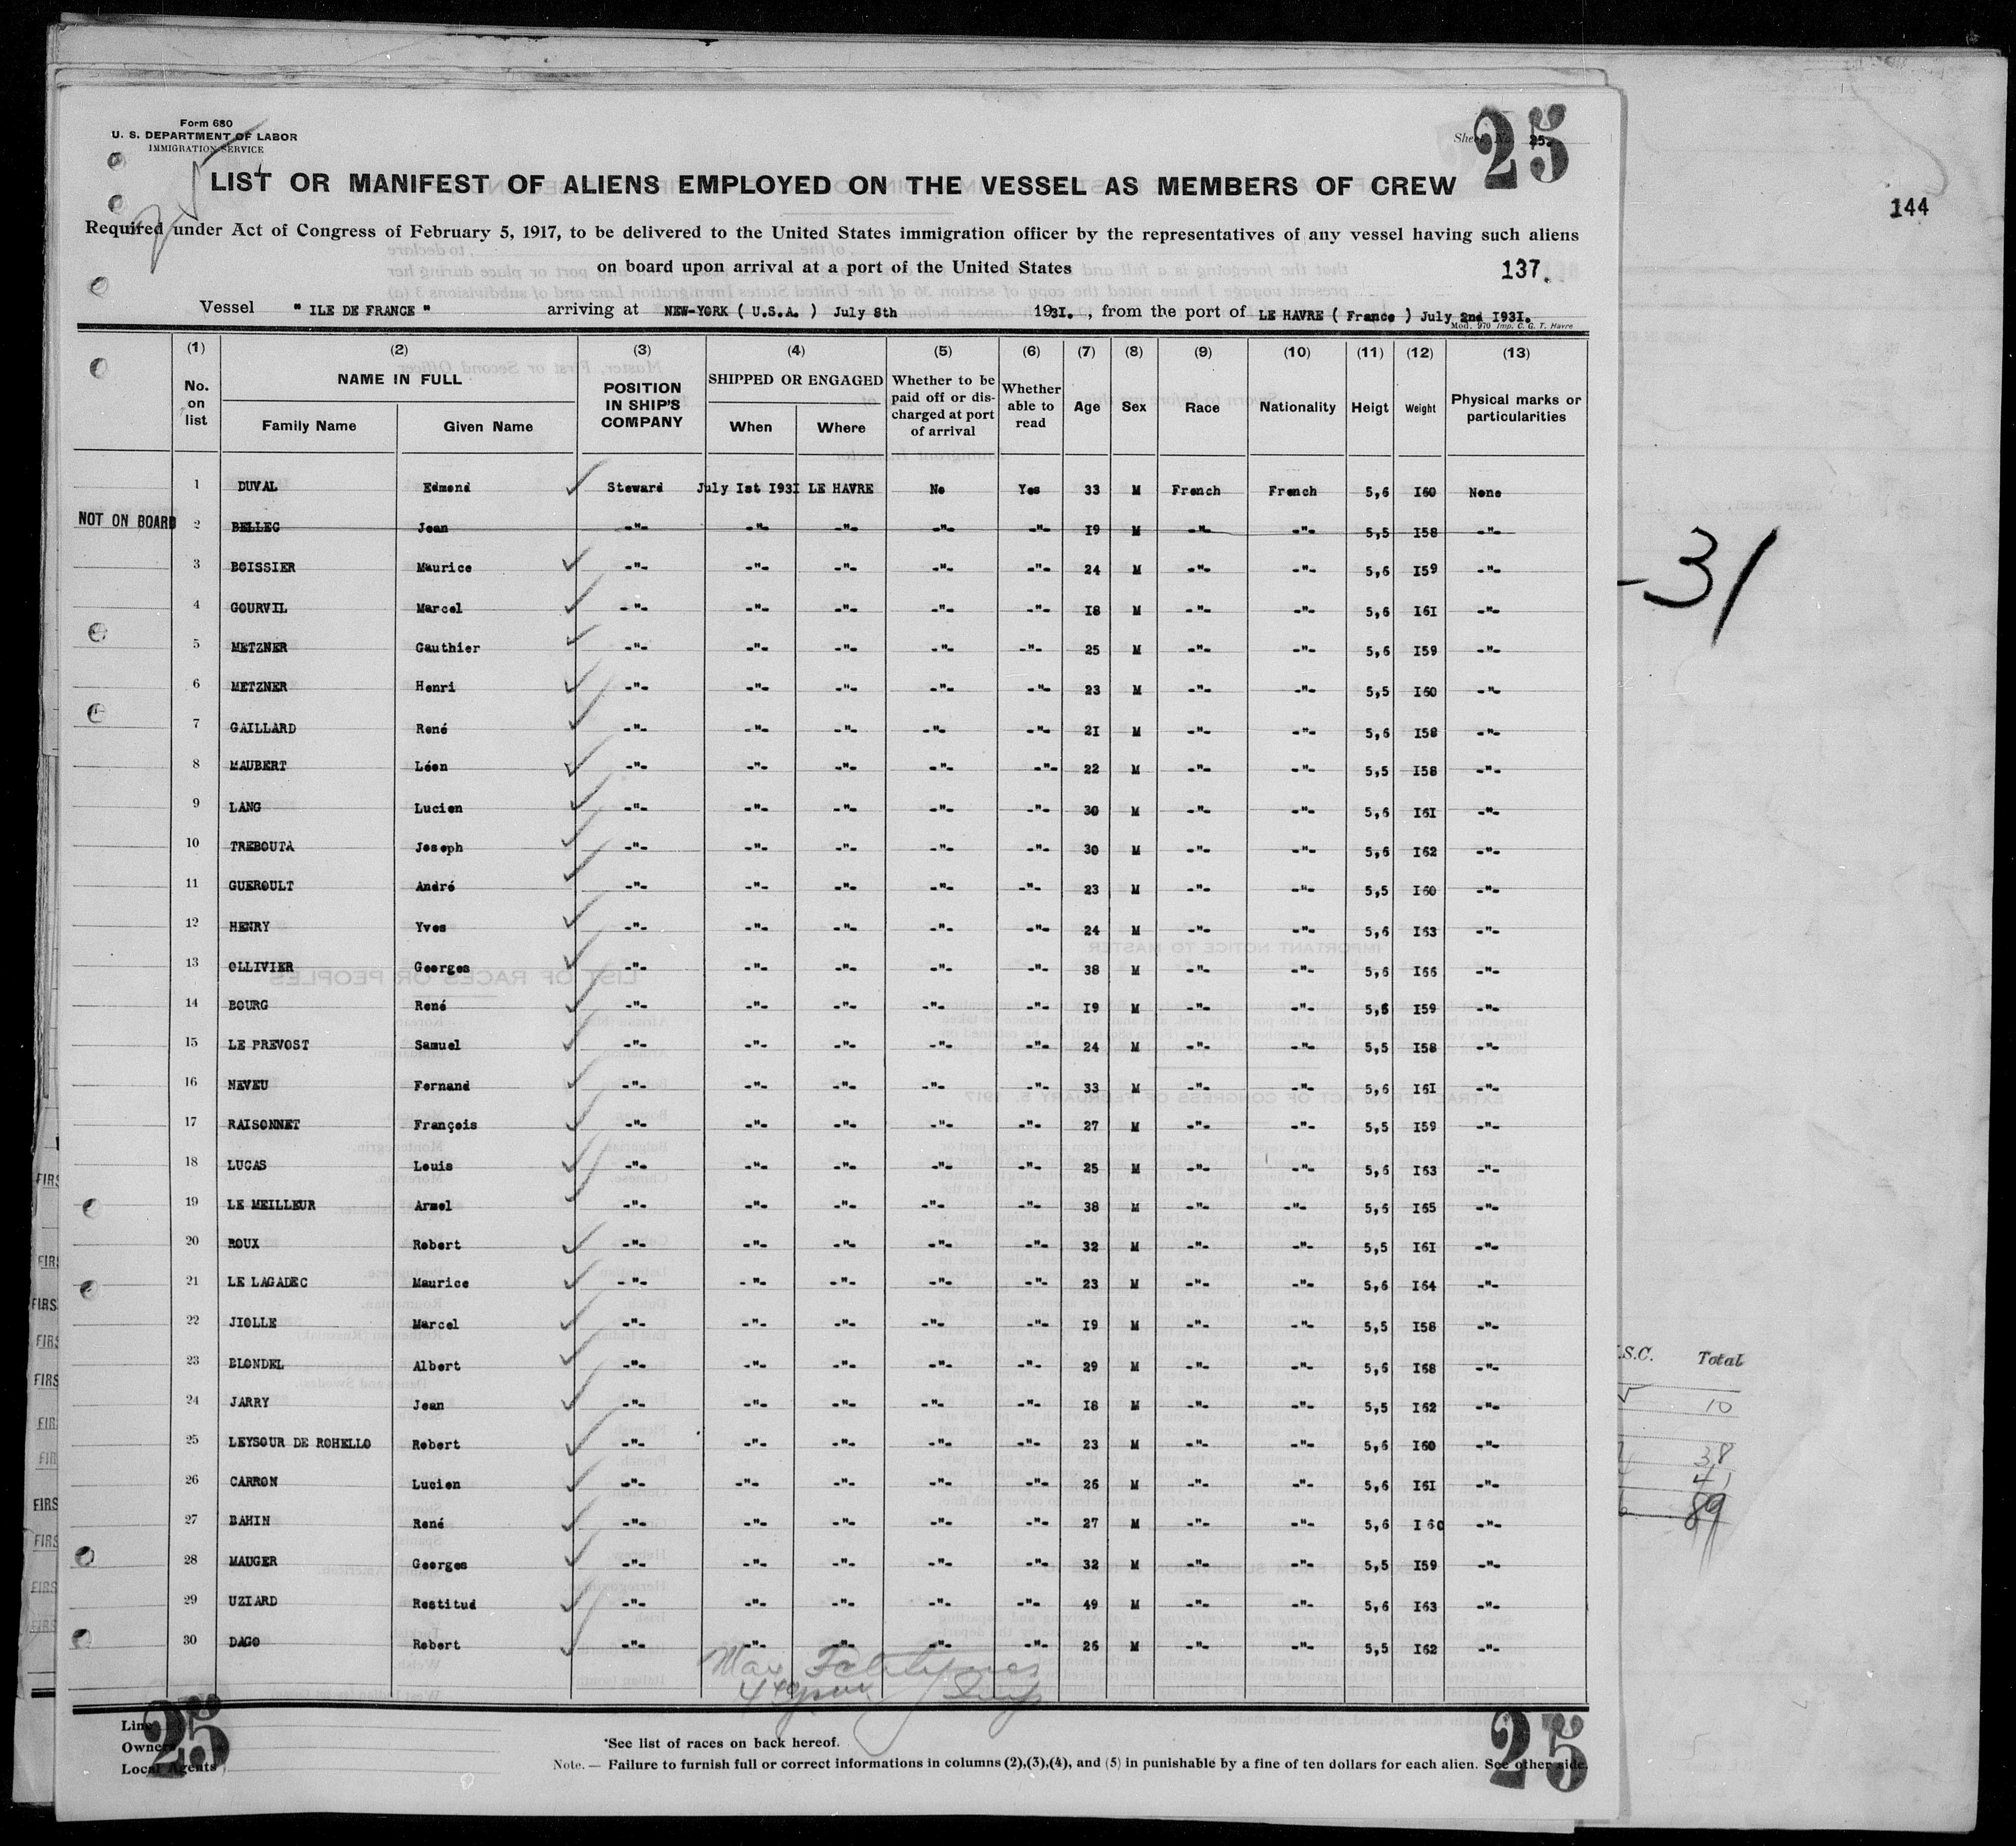 Form 680
U. S. DEPARTMENT OF LABOR
IMMIGRATION SERVICE
Sheet No. 25.
25
144
LIST OR MANIFEST OF ALIENS EMPLOYED ON THE VESSEL AS MEMBERS OF CREW
Required under Act of Congress of February 5, 1917, to be delivered to the United States immigration officer by the representatives of any vessel having such aliens
on board upon arrival at a port of the United States
137.
Vessel " ILE DE FRANCE " arriving at NEW-YORK ( U.S.A. ) July 8th 193I. , from the port of LE HAVRE ( France ) July 2nd I93I.
Mod. 970 Imp. C. G. T. Havre
(1) (2) (3) (4) (5) (6) (7) (8) (9) (10) (11) (12) (13)
No. on list NAME IN FULL Family Name Given Name POSITION IN SHIP'S COMPANY SHIPPED OR ENGAGED When Where Whether to be paid off or discharged at port of arrival Whether able to read Age Sex Race Nationality Heigt Weight Physical marks or particularities
1 DUVAL Edmond Steward July Ist I93I LE HAVRE No Yes 33 M French French 5,6 I60 None
NOT ON BOARD 2 BELLEC Jean -"- -"- -"- -"- -"- I9 M -"- -"- 5,5 I58 -"-
3 BOISSIER Maurice -"- -"- -"- -"- -"- 24 M -"- -"- 5,6 I59 -"-
4 GOURVIL Marcel -"- -"- -"- -"- -"- I8 M -"- -"- 5,6 I6I -"-
5 METZNER Gauthier -"- -"- -"- -"- -"- 25 M -"- -"- 5,6 I59 -"-
6 METZNER Henri -"- -"- -"- -"- -"- 23 M -"- -"- 5,5 I60 -"-
7 GAILLARD René -"- -"- -"- -"- -"- 2I M -"- -"- 5,6 I58 -"-
8 MAUBERT Léon -"- -"- -"- -"- -"- 22 M -"- -"- 5,5 I58 -"-
9 LANG Lucien -"- -"- -"- -"- -"- 30 M -"- -"- 5,6 I6I -"-
10 TREBOUTA Joseph -"- -"- -"- -"- -"- 30 M -"- -"- 5,6 I62 -"-
11 GUEROULT André -"- -"- -"- -"- -"- 23 M -"- -"- 5,5 I60 -"-
12 HENRY Yves -"- -"- -"- -"- -"- 24 M -"- -"- 5,6 I63 -"-
13 OLLIVIER Georges -"- -"- -"- -"- -"- 38 M -"- -"- 5,6 I66 -"-
14 BOURG René -"- -"- -"- -"- -"- I9 M -"- -"- 5,6 I59 -"-
15 LE PREVOST Samuel -"- -"- -"- -"- -"- 24 M -"- -"- 5,5 I58 -"-
16 NEVEU Fernand -"- -"- -"- -"- -"- 33 M -"- -"- 5,6 I6I -"-
17 RAISONNET François -"- -"- -"- -"- -"- 27 M -"- -"- 5,5 I59 -"-
18 LUCAS Louis -"- -"- -"- -"- -"- 25 M -"- -"- 5,6 I63 -"-
19 LE MEILLEUR Armel -"- -"- -"- -"- -"- 38 M -"- -"- 5,6 I65 -"-
20 ROUX Robert -"- -"- -"- -"- -"- 32 M -"- -"- 5,5 I6I -"-
21 LE LAGADEC Maurice -"- -"- -"- -"- -"- 23 M -"- -"- 5,6 I64 -"-
22 JIOLLE Marcel -"- -"- -"- -"- -"- I9 M -"- -"- 5,5 I58 -"-
23 BLONDEL Albert -"- -"- -"- -"- -"- 29 M -"- -"- 5,6 I68 -"-
24 JARRY Jean -"- -"- -"- -"- -"- I8 M -"- -"- 5,5 I62 -"-
25 LEYSOUR DE ROHELLO Robert -"- -"- -"- -"- -"- 23 M -"- -"- 5,6 I60 -"-
26 CARRON Lucien -"- -"- -"- -"- -"- 26 M -"- -"- 5,6 I6I -"-
27 BAHIN René -"- -"- -"- -"- -"- 27 M -"- -"- 5,6 I60 -"-
28 MAUGER Georges -"- -"- -"- -"- -"- 32 M -"- -"- 5,5 I59 -"-
29 UZIARD Restitud -"- -"- -"- -"- -"- 49 M -"- -"- 5,6 I63 -"-
30 DAGO Robert -"- -"- -"- -"- -"- 26 M -"- -"- 5,5 I62 -"-
Line
Owners
Local Agents
25
25
*See list of races on back hereof.
Note. — Failure to furnish full or correct informations in columns (2),(3),(4), and (5) in punishable by a fine of ten dollars for each alien. See other side.
-31
.S.C. Total
10
38
41
89